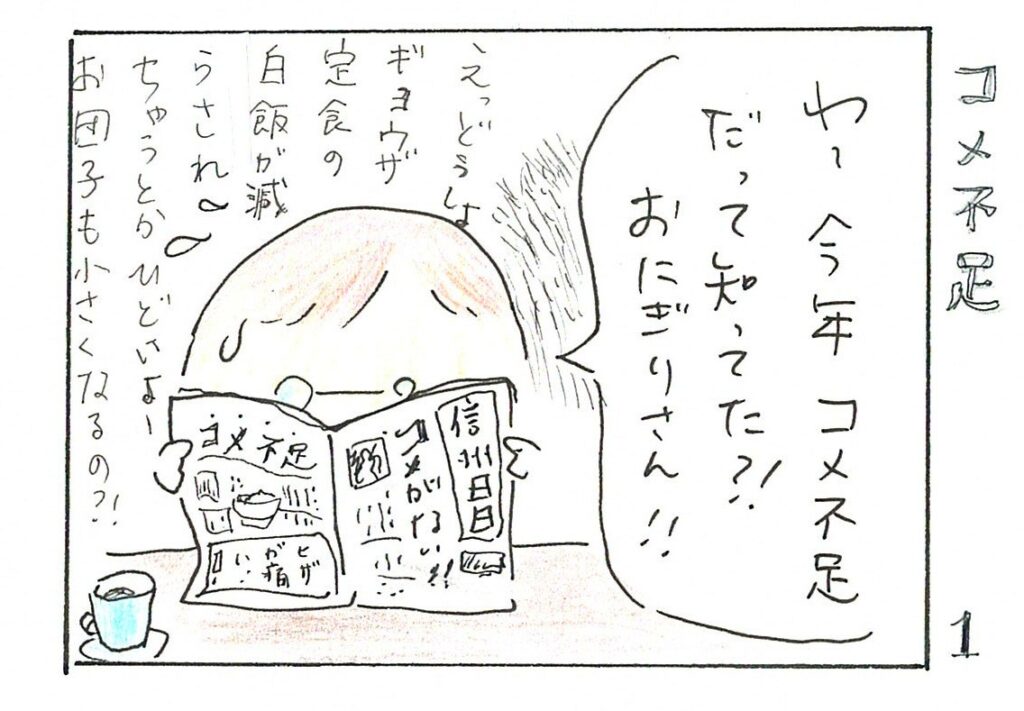 コメ不足
1
わー 今年 コメ不足
だって知ってた?!
おにぎりさん!!
えっどうしよ
ギョウザ
定食の
白飯が減
らされ
ちゃうとかひどいよー
お団子も小さくなるの?!
信州日日
コメがない!!
コメ不足
ヒザ
が痛
い…